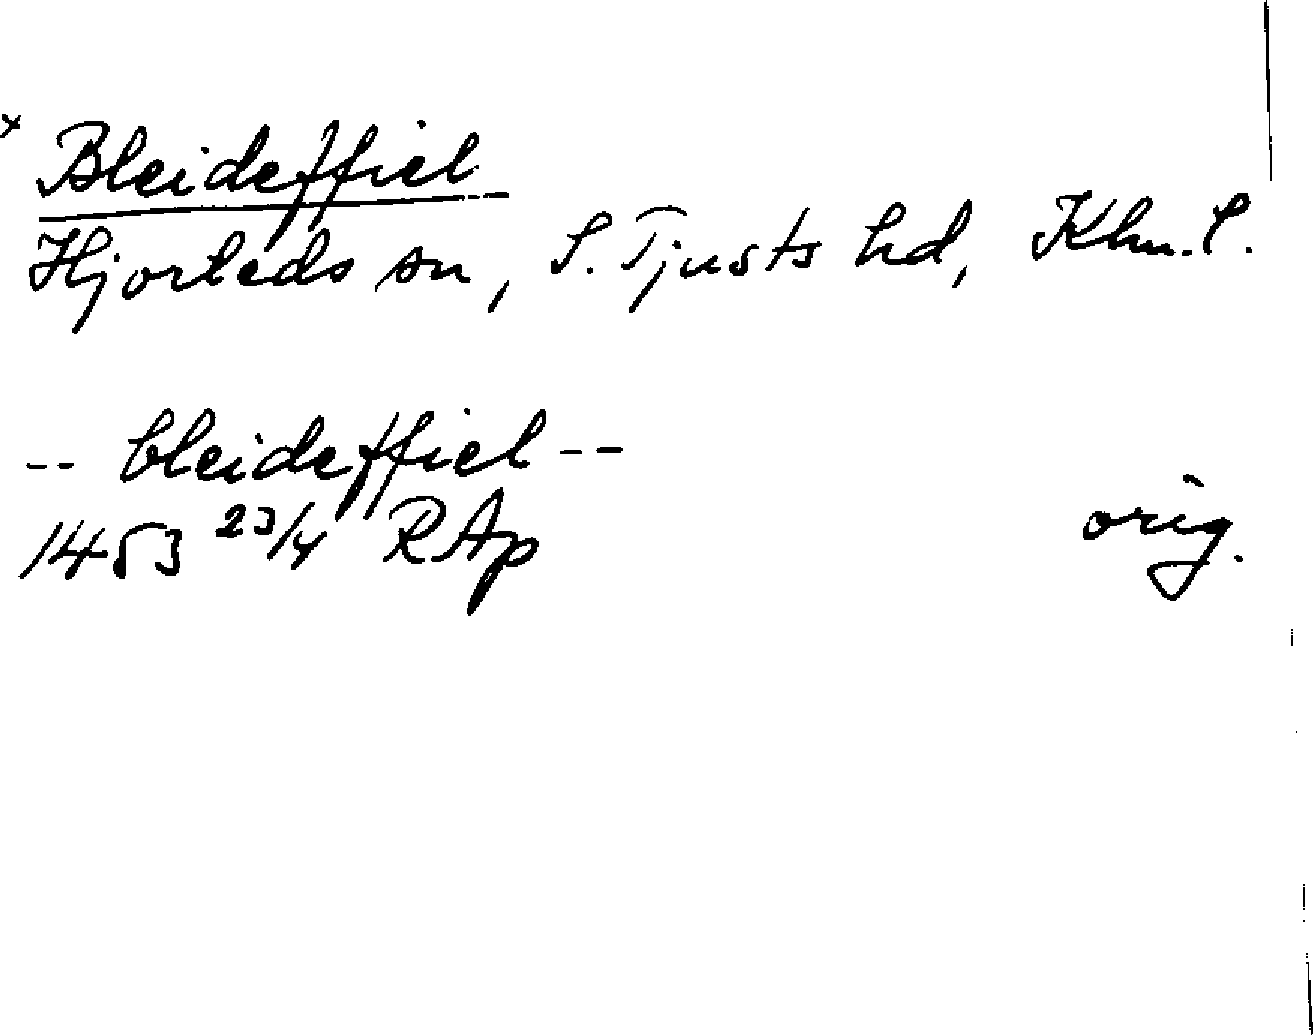 x Bleideffiel
Hjorteds sn, S. Tjusts hd, Klm. l.
-- bleideffiel --
1453 23/4 RAp orig.